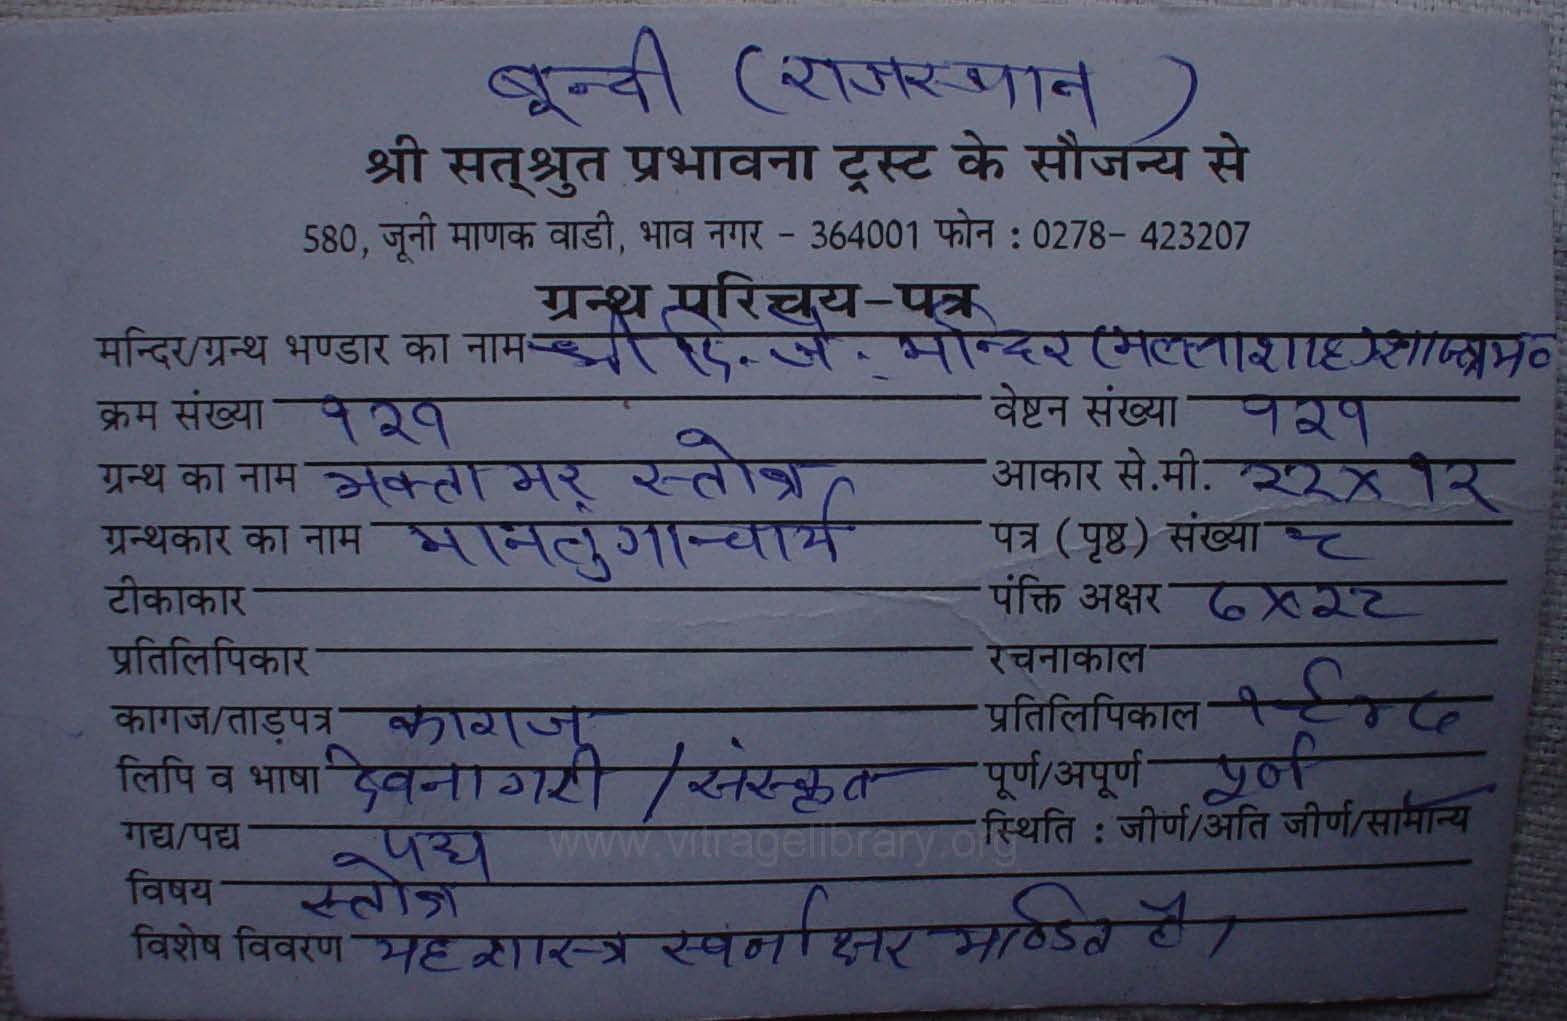 बून्दी (राजस्थान)
श्री सत्श्रुत प्रभावना ट्रस्ट के सौजन्य से
580, जूनी माणक वाडी, भाव नगर - 364001 फोन : 0278- 423207
ग्रन्थ परिचय-पत्र
मन्दिर/ग्रन्थ भण्डार का नाम श्री दि. जै. मन्दिर (मल्लाशाह) शास्त्र भ०
क्रम संख्या १२१ वेष्टन संख्या १२१
ग्रन्थ का नाम भक्तामर स्तोत्र आकार से.मी. २२x१२
ग्रन्थकार का नाम मानतुगाचार्य पत्र (पृष्ठ) संख्या ८
टीकाकार पंक्ति अक्षर ७x२८
प्रतिलिपिकार रचनाकाल
कागज/ताड़पत्र कागज प्रतिलिपिकाल
लिपि व भाषा देवनागरी / संस्कृत पूर्ण/अपूर्ण पूर्ण
गद्य/पद्य पद्य स्थिति : जीर्ण/अति जीर्ण/सामान्य
विषय स्तोत्र
विशेष विवरण यह शास्त्र स्वर्नाक्षर मण्डित है।
www.vitragelibrary.org